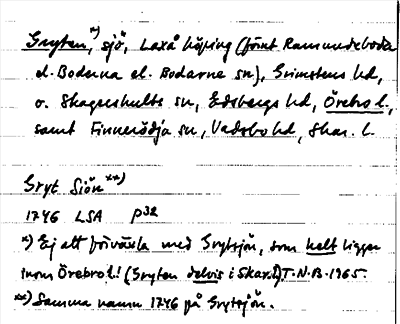 Gryten,*) sjö, Laxå köping (förut Ramundeboda
el. Boderna el. Bodarne sn), Grimstens hd,
o. Skagershults sn, Edsbergs hd, Örebro l.,
samt Finnerödja sn, Vadsbo hd, Skar. l.
Gryt Siön **)
1746 LSA p32
*) Ej att förväxla med Grytsjön, som helt ligger
inom Örebro l.! (Gryten delvis i Skar.l.) T.N.B. 1965.
**) Samma namn 1746 på Grytsjön.